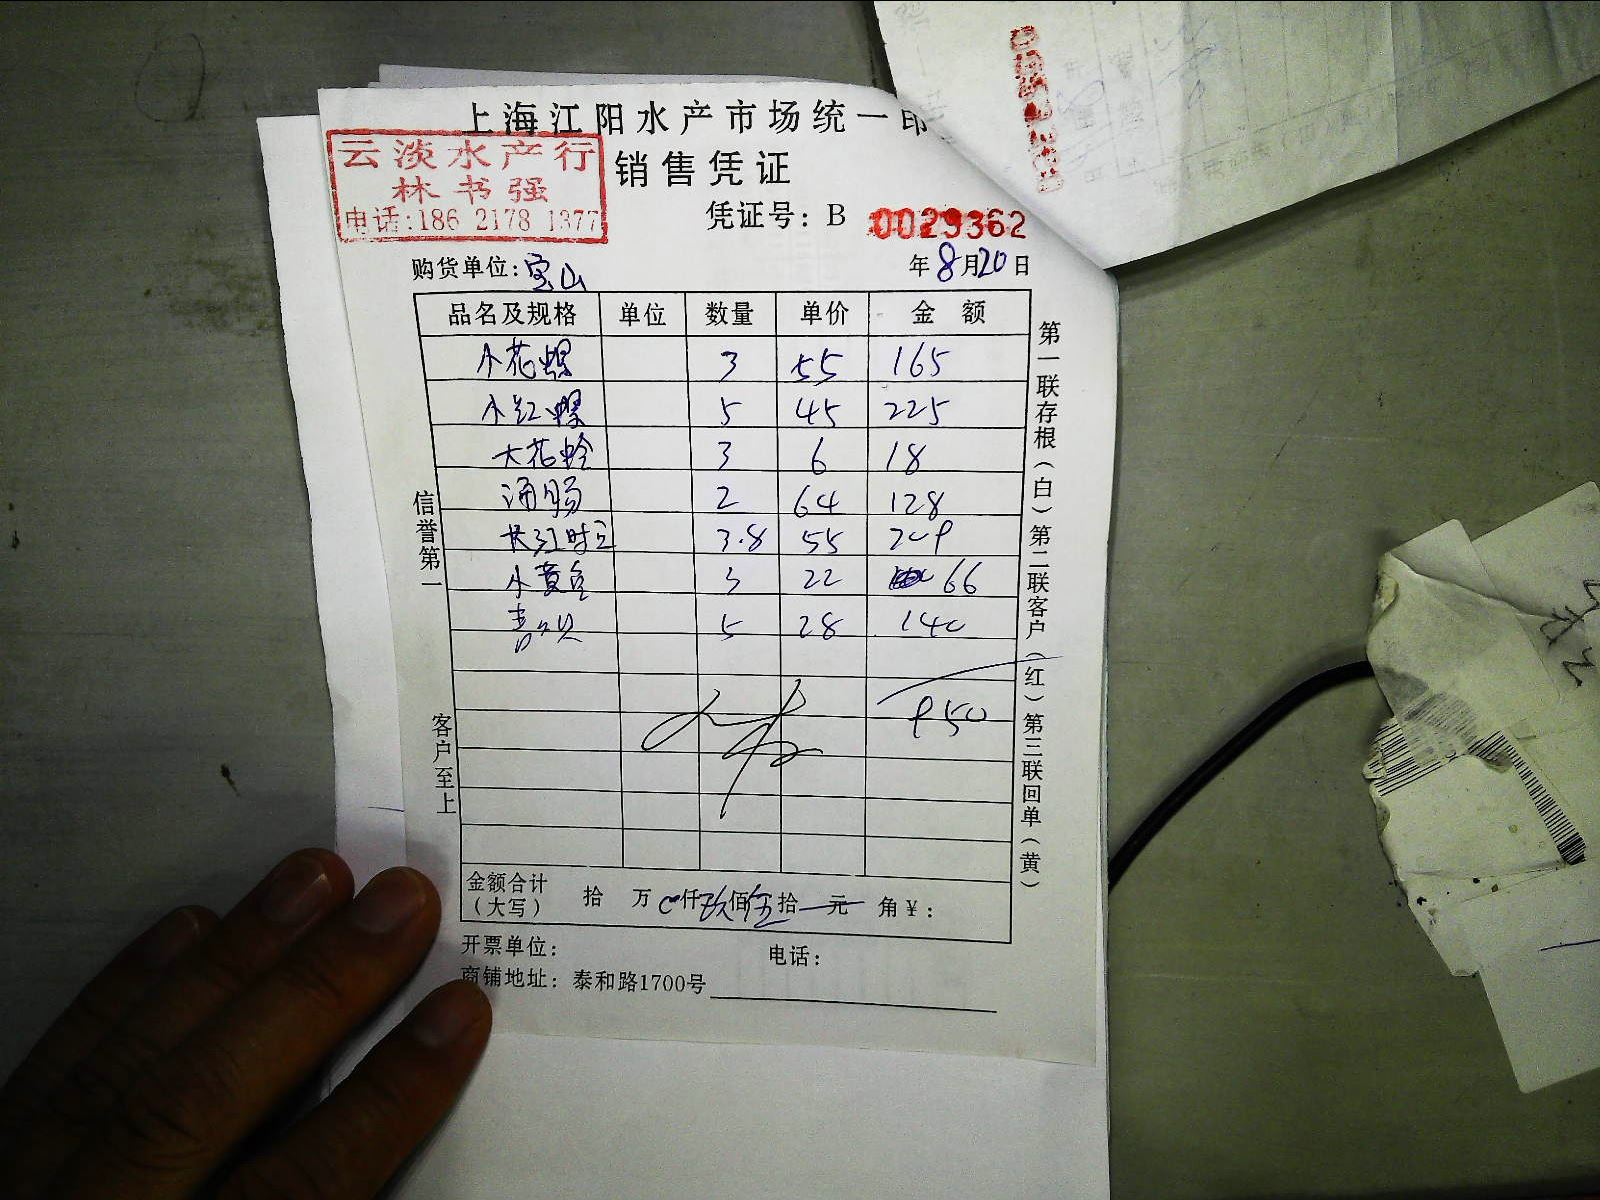 上海江阳水产市场统一印
云淡水产行
林书强
电话:186 2178 1377
销售凭证
凭证号: B 0029362
购货单位: 宝山
年 8 月 20 日
品名及规格 单位 数量 单价 金 额
小花螺 3 55 165
小红螺 5 45 225
大花蛤 3 6 18
海肠 2 64 128
3.8 55 209
小黄鱼 3 22 66
青口贝 5 28 140
950
金额合计 拾 万 0仟玖佰伍拾 元 角 ¥:
(大写)
开票单位: 电话:
商铺地址: 泰和路1700号
信誉第一
客户至上
第一联存根(白)第二联客户(红)第三联回单(黄)